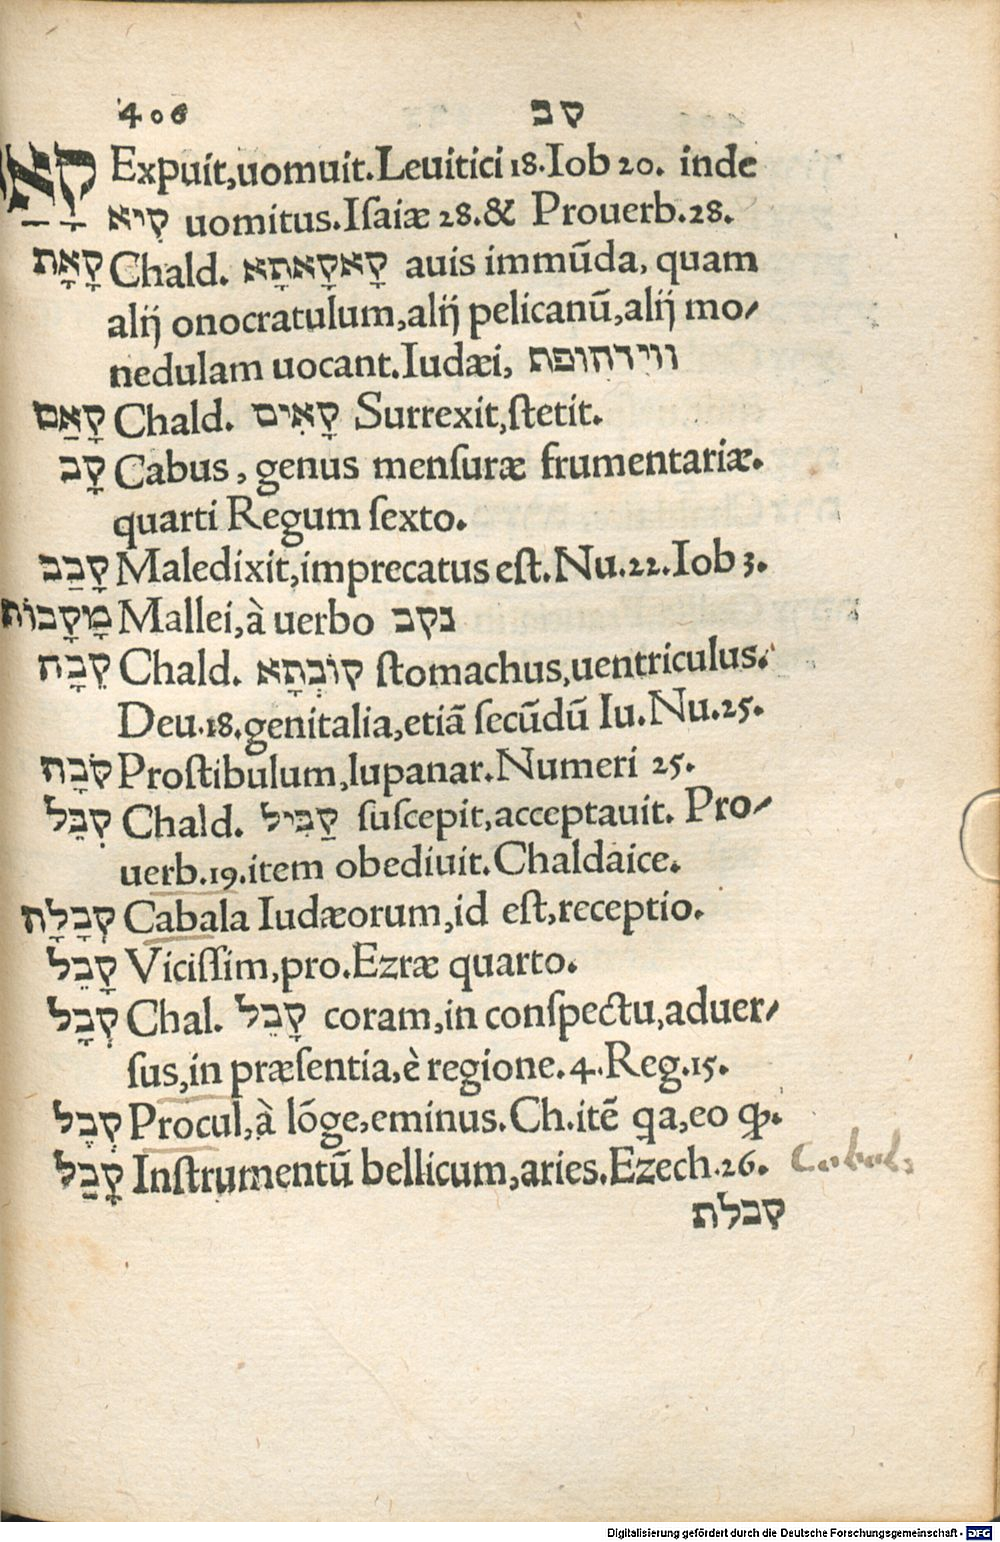 406 קב
קָאַ Expuit,uomuit.Leuitici 18.Iob 20. inde
קִיא uomitus.Iſaiæ 28.& Prouerb.28.
קָאָת Chald. קָאקָאתָא auis immũda, quam
alij onocratulum,alij pelicanũ,alij mo/
nedulam uocant.Iudæi, ווידהופת
קָאַם Chald. קָאִים Surrexit,ſtetit.
קָב Cabus, genus menſuræ frumentariæ.
quarti Regum ſexto.
קָבַב Maledixit,imprecatus eſt.Nu.22.Iob 3.
מָקָבוֹת Mallei,à uerbo נקב
קֵבָה Chald. קוֹבְתָא ſtomachus,uentriculus.
Deu.18.genitalia,etiã ſecũdũ Iu.Nu.25.
קֹבָה Proſtibulum,lupanar.Numeri 25.
קִבֵּל Chald. קַבִּיל ſuſcepit,acceptauit. Pro/
uerb.19.item obediuit.Chaldaice.
קְבָלָה Cabala Iudæorum,id eſt,receptio.
קָבֵל Viciſſim,pro.Ezræ quarto.
קְבָל Chal. קָבֵל coram,in conſpectu,aduer/
ſus,in præſentia,è regione.4.Reg.15.
קְבֶל Procul,à lõge,eminus.Ch.itẽ qa,eo ꝙ.
קָבַל Inſtrumentũ bellicum,aries.Ezech.26. Cabal:
קבלת
Digitalisierung gefördert durch die Deutsche Forschungsgemeinschaft - DFG